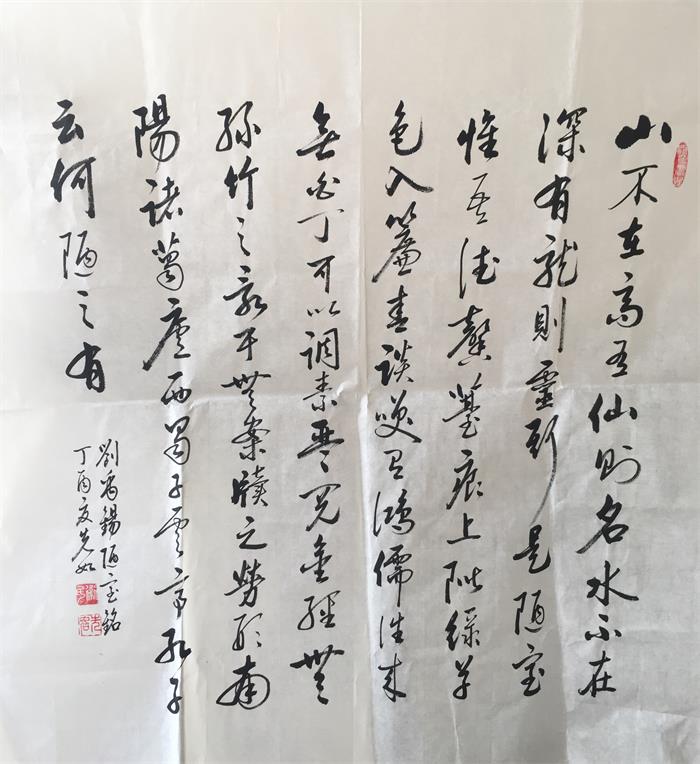 山不在高有仙则名水不在
深有龍則靈斯是陋室
惟吾德馨薹痕上階緑草
色入簾青談笑有鴻儒往来
無白丁可以调素琴阅金經無
絲竹之亂耳無案牘之勞形南
陽諸葛廬西蜀子雲亭孔子
云何陋之有
劉禹錫陋室銘
丁酉夏先如